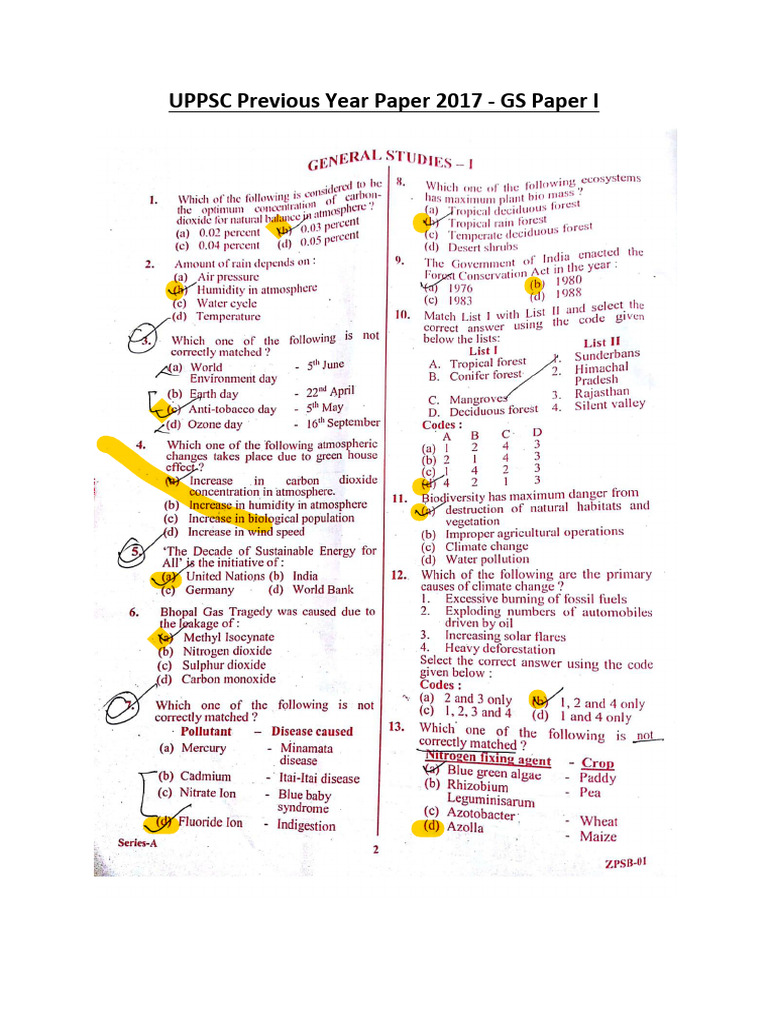 UPPSC Previous Year Paper 2017 - GS Paper I
GENERAL STUDIES – I
1. Which of the following is considered to be
the optimum concentration of carbon-
dioxide for natural balance in atmosphere ?
(a) 0.02 percent (b) 0.03 percent
(c) 0.04 percent (d) 0.05 percent
2. Amount of rain depends on :
(a) Air pressure
(b) Humidity in atmosphere
(c) Water cycle
(d) Temperature
3. Which one of the following is not
correctly matched ?
(a) World - 5th June
Environment day
(b) Earth day - 22nd April
(c) Anti-tobacco day - 5th May
(d) Ozone day - 16th September
4. Which one of the following atmospheric
changes takes place due to green house
effect ?
(a) Increase in carbon dioxide
concentration in atmosphere.
(b) Increase in humidity in atmosphere
(c) Increase in biological population
(d) Increase in wind speed
5. 'The Decade of Sustainable Energy for
All' is the initiative of :
(a) United Nations (b) India
(c) Germany (d) World Bank
6. Bhopal Gas Tragedy was caused due to
the leakage of :
(a) Methyl Isocynate
(b) Nitrogen dioxide
(c) Sulphur dioxide
(d) Carbon monoxide
7. Which one of the following is not
correctly matched ?
Pollutant – Disease caused
(a) Mercury - Minamata
disease
(b) Cadmium - Itai-Itai disease
(c) Nitrate Ion - Blue baby
syndrome
(d) Fluoride Ion - Indigestion
Series-A
8. Which one of the following ecosystems
has maximum plant bio mass ?
(a) Tropical deciduous forest
(b) Tropical rain forest
(c) Temperate deciduous forest
(d) Desert shrubs
9. The Government of India enacted the
Forest Conservation Act in the year :
(a) 1976 (b) 1980
(c) 1983 (d) 1988
10. Match List I with List II and select the
correct answer using the code given
below the lists:
List I List II
A. Tropical forest 1. Sunderbans
B. Conifer forest 2. Himachal
Pradesh
C. Mangroves 3. Rajasthan
D. Deciduous forest 4. Silent valley
Codes :
A B C D
(a) 1 2 4 3
(b) 2 1 4 3
(c) 1 4 2 3
(d) 4 2 1 3
11. Biodiversity has maximum danger from
(a) destruction of natural habitats and
vegetation
(b) Improper agricultural operations
(c) Climate change
(d) Water pollution
12. Which of the following are the primary
causes of climate change ?
1. Excessive burning of fossil fuels
2. Exploding numbers of automobiles
driven by oil
3. Increasing solar flares
4. Heavy deforestation
Select the correct answer using the code
given below :
Codes :
(a) 2 and 3 only (b) 1, 2 and 4 only
(c) 1, 2, 3 and 4 (d) 1 and 4 only
13. Which one of the following is not
correctly matched ?
Nitrogen fixing agent - Crop
(a) Blue green algae - Paddy
(b) Rhizobium - Pea
Leguminisarum
(c) Azotobacter - Wheat
(d) Azolla - Maize
2
ZPSB-01